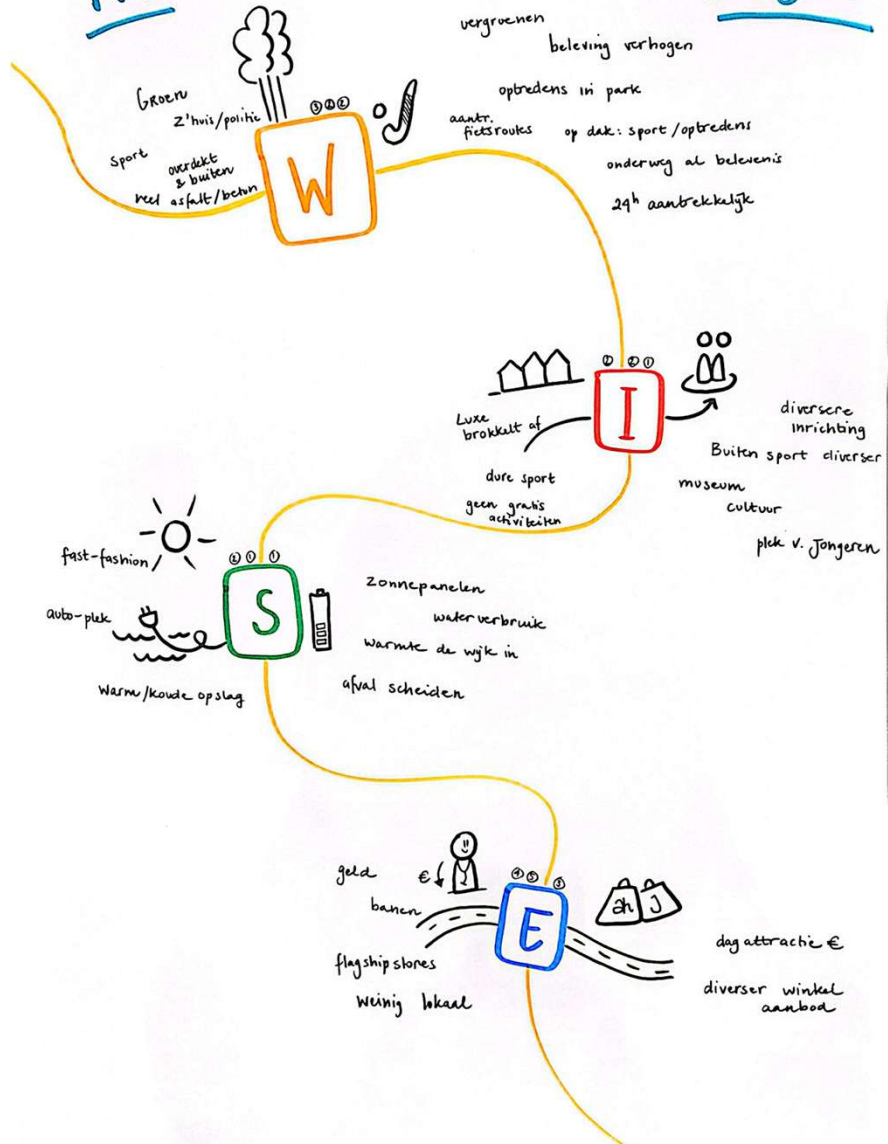 vergroenen
beleving verhogen
optredens in park
aantr.
fietsroutes
op dak: sport/optredens
onderweg al belevenis
24h aantrekkelijk
Groen
z'huis/politie
sport
overdekt
& buiten
veel asfalt/beton
③②②
W
② ②①
I
Luxe
brokkelt af
dure sport
geen gratis
activiteiten
diversere
inrichting
Buiten sport diverser
museum
cultuur
plek v. Jongeren
fast-fashion
auto-plek
warm/koude opslag
②① ①
S
zonnepanelen
waterverbruik
warmte de wijk in
afval scheiden
geld
€
banen
flagshipstores
weinig lokaal
④⑤ ③
E
ah J
dagattractie €
diverser winkel
aanbod